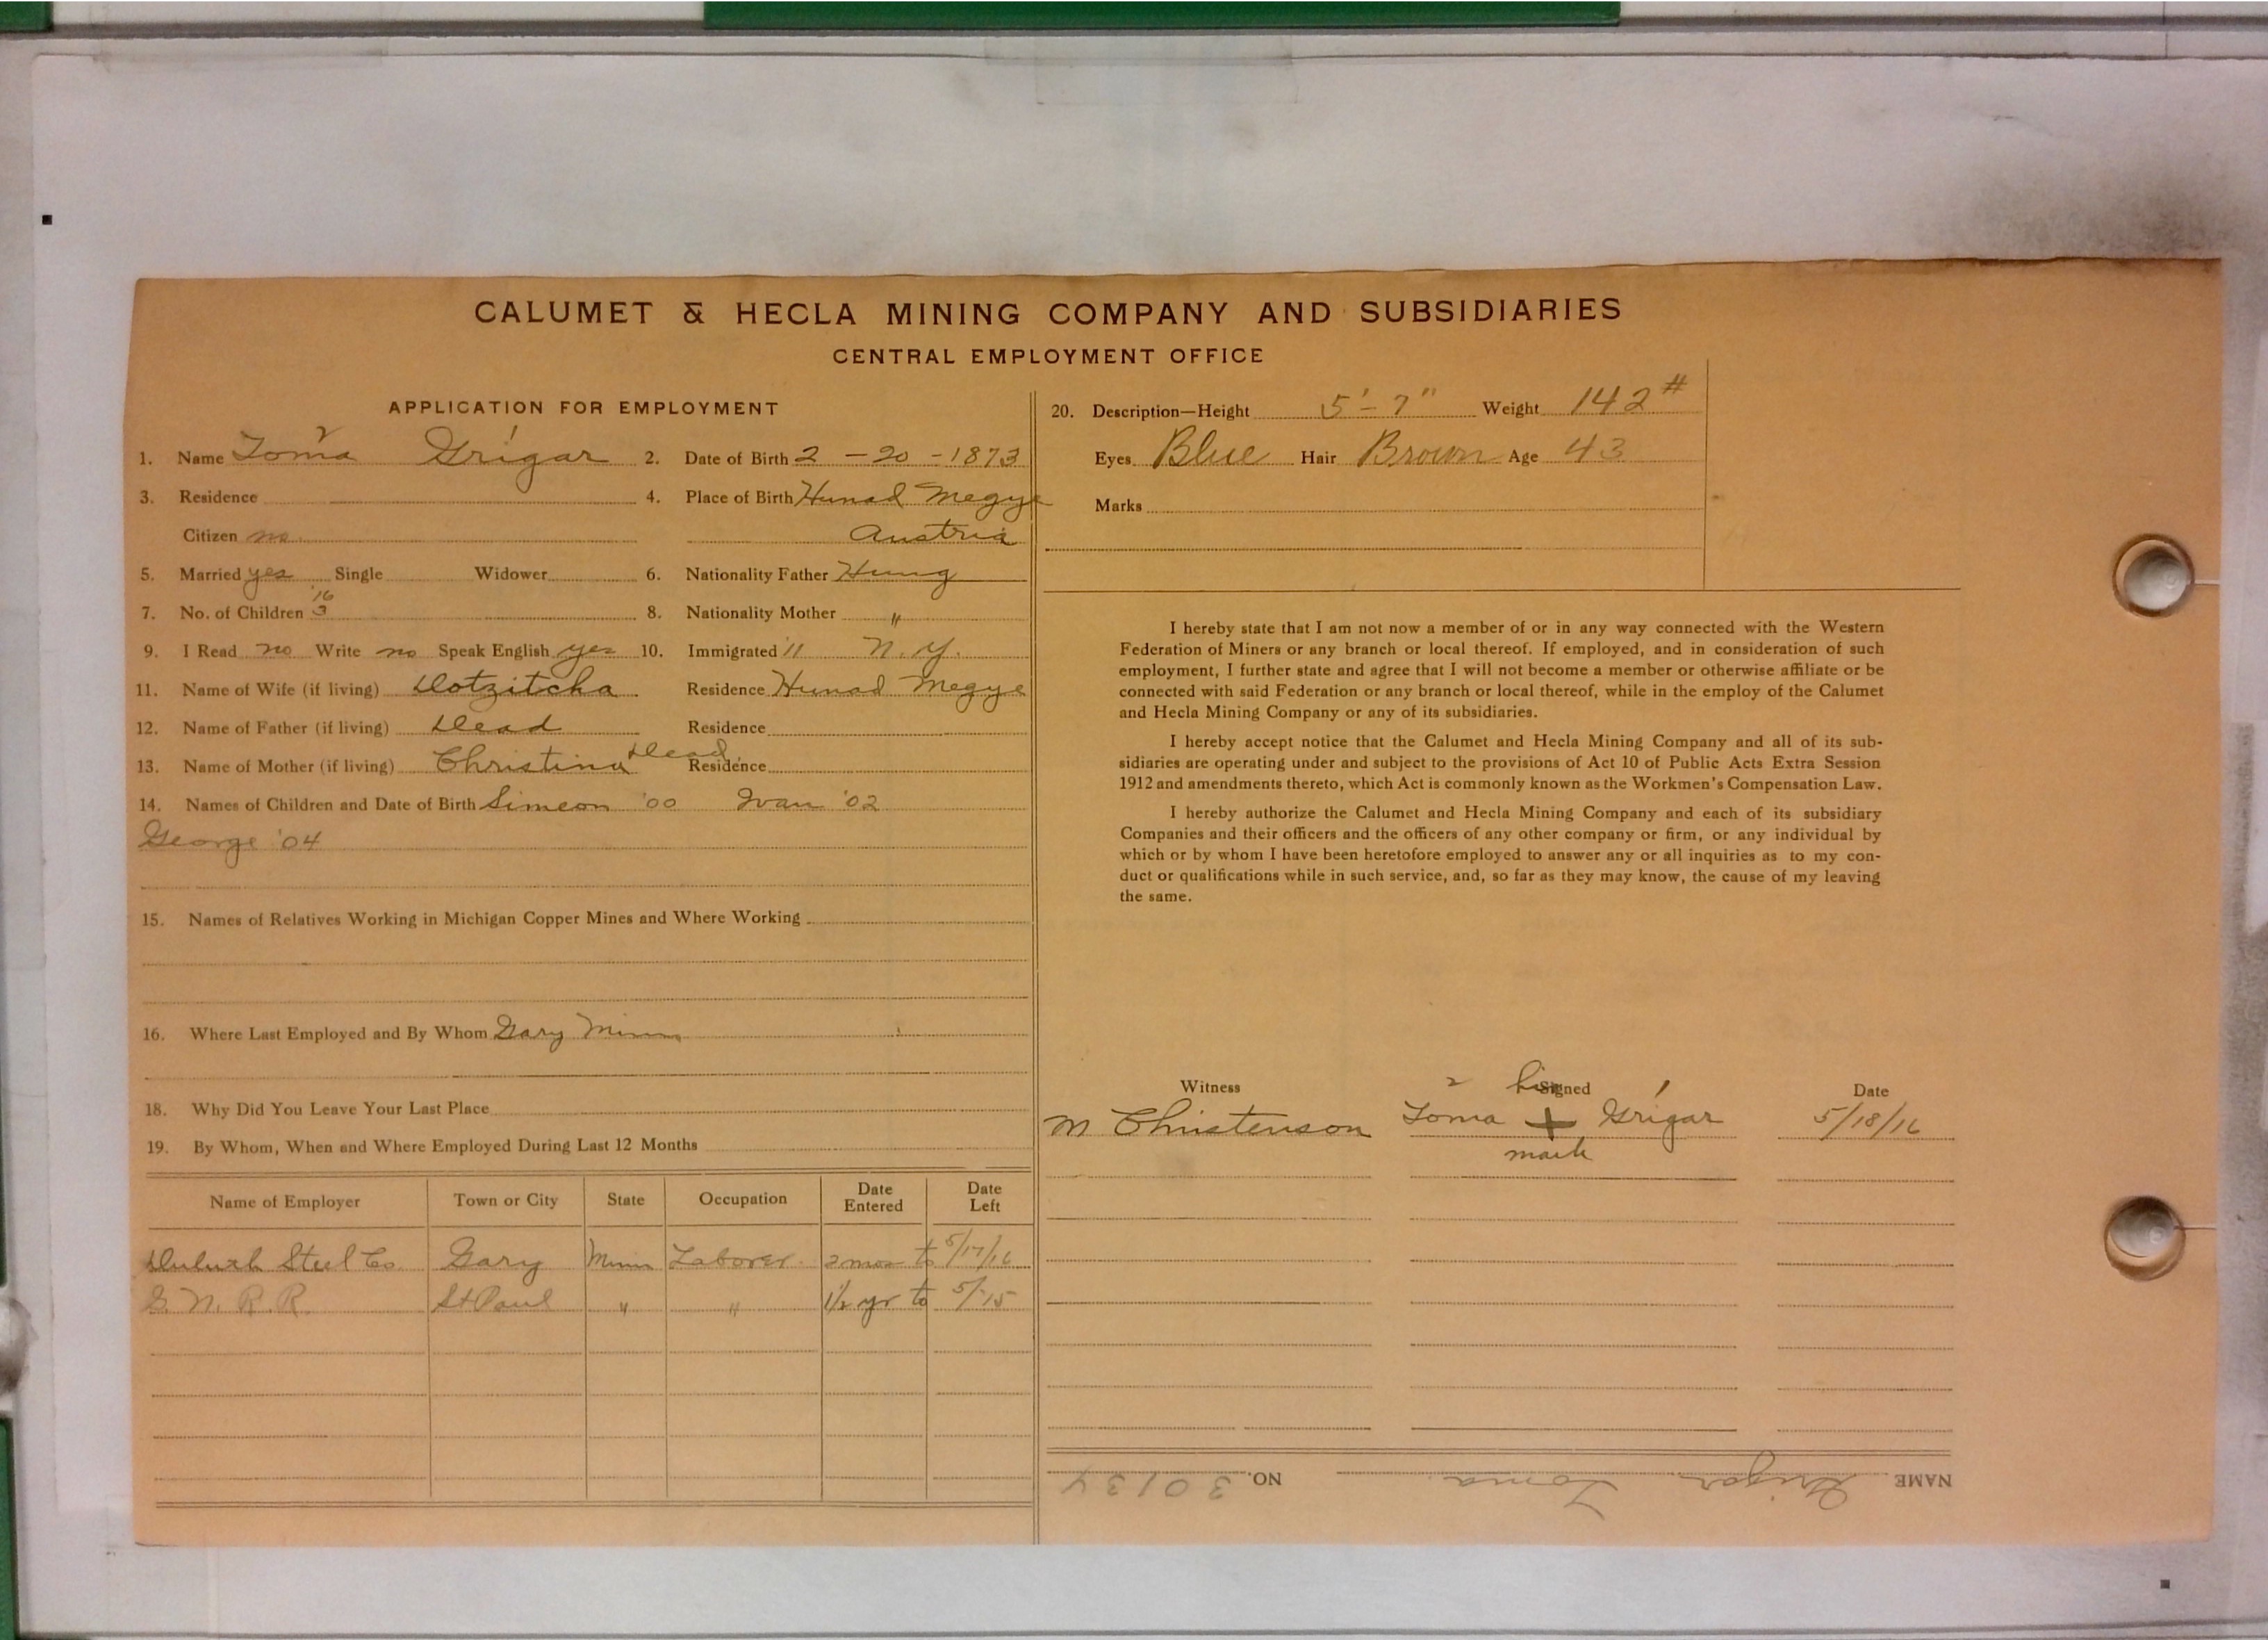 CALUMET & HECLA MINING COMPANY AND SUBSIDIARIES
CENTRAL EMPLOYMENT OFFICE
APPLICATION FOR EMPLOYMENT
2 1
1. Name Toma Grigar 2. Date of Birth 2 - 20 - 1873
3. Residence 4. Place of Birth Hunad Megye
Citizen no Austria
5. Married yes Single Widower 6. Nationality Father Hung
'16
7. No. of Children 3 8. Nationality Mother "
9. I Read no Write no Speak English yes 10. Immigrated '11 N.Y.
11. Name of Wife (if living) Dotzitcha Residence Hunad Megye
12. Name of Father (if living) Dead Residence
13. Name of Mother (if living) Christina Dead Residence
14. Names of Children and Date of Birth Simeon '00 Ivan '02
George '04
15. Names of Relatives Working in Michigan Copper Mines and Where Working
16. Where Last Employed and By Whom Gary Minn
18. Why Did You Leave Your Last Place
19. By Whom, When and Where Employed During Last 12 Months
Name of Employer Town or City State Occupation Date Entered Date Left
Duluth Steel Co Gary Minn Laborer 2 mos to 5/17/16
G. N. R. R. St Paul " " 1/2 yr to 5/-15
20. Description—Height 5'-7" Weight 142#
Eyes Blue Hair Brown Age 43
Marks
I hereby state that I am not now a member of or in any way connected with the Western
Federation of Miners or any branch or local thereof. If employed, and in consideration of such
employment, I further state and agree that I will not become a member or otherwise affiliate or be
connected with said Federation or any branch or local thereof, while in the employ of the Calumet
and Hecla Mining Company or any of its subsidiaries.
I hereby accept notice that the Calumet and Hecla Mining Company and all of its sub-
sidiaries are operating under and subject to the provisions of Act 10 of Public Acts Extra Session
1912 and amendments thereto, which Act is commonly known as the Workmen's Compensation Law.
I hereby authorize the Calumet and Hecla Mining Company and each of its subsidiary
Companies and their officers and the officers of any other company or firm, or any individual by
which or by whom I have been heretofore employed to answer any or all inquiries as to my con-
duct or qualifications while in such service, and, so far as they may know, the cause of my leaving
the same.
Witness Signed Date
2 his 1
M Christenson Toma + Grigar 5/18/16
mark
NAME Grigar Toma NO. 30134